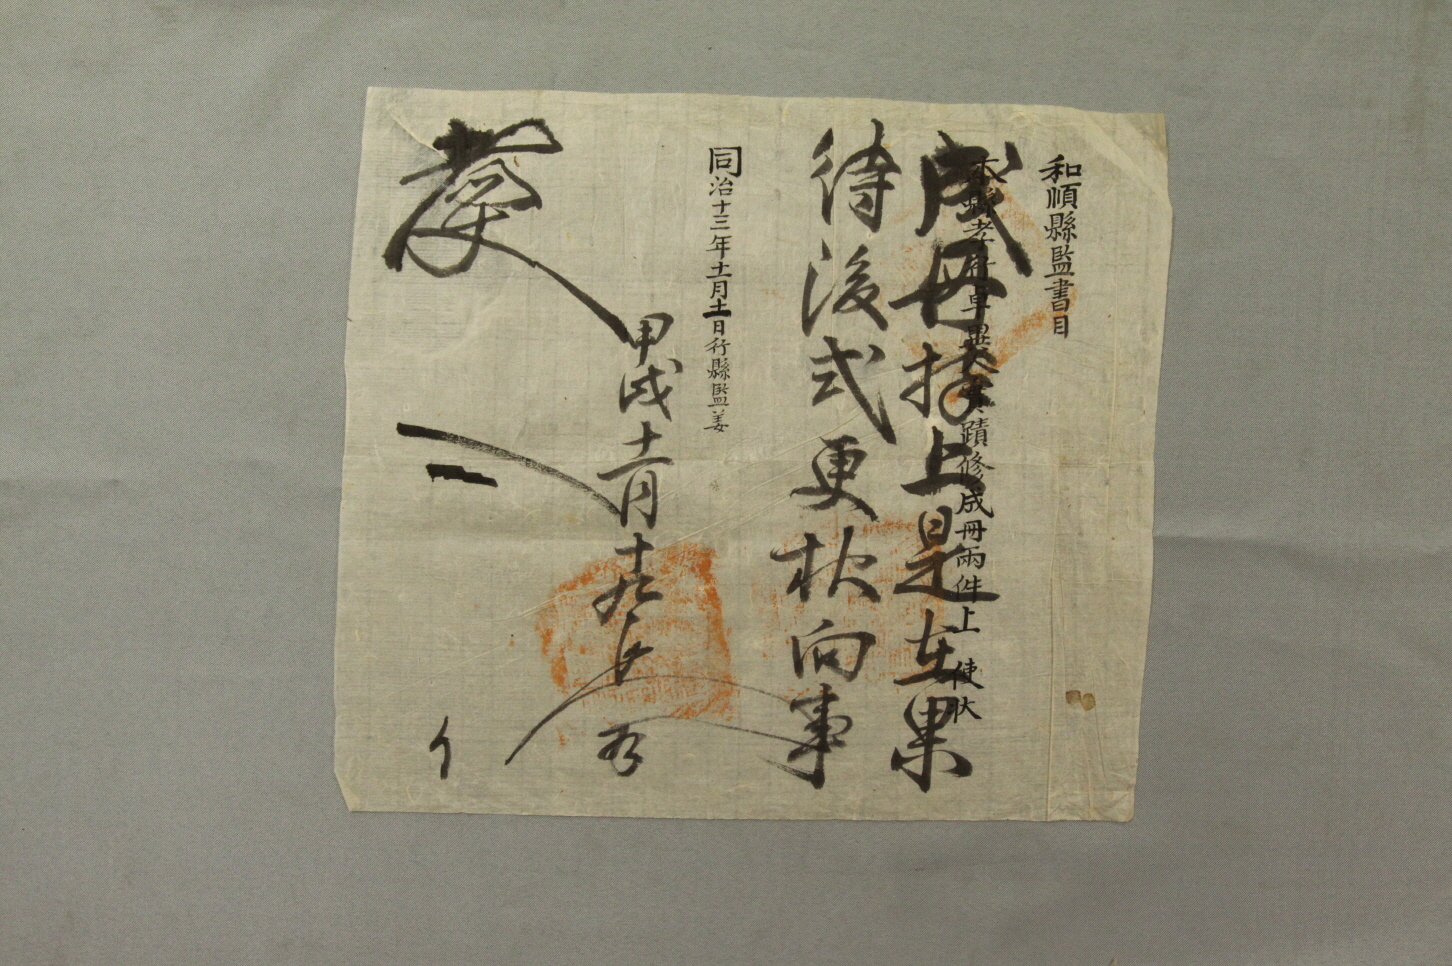 和順縣監書目
本縣孝行卓異實蹟修成冊兩件上 使狀
成冊捧上是在果
待後式更杦向事
同治十三年十二月十二日行縣監姜
甲戌十二月十九日